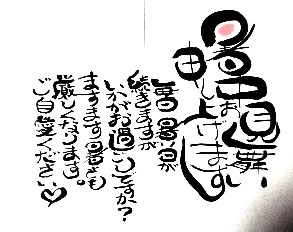 暑中お見舞い
申し上げます
毎日暑い日が
続きますが
いかがお過ごしですか？
ますます暑さも
厳しくなります。
ご自愛ください♡